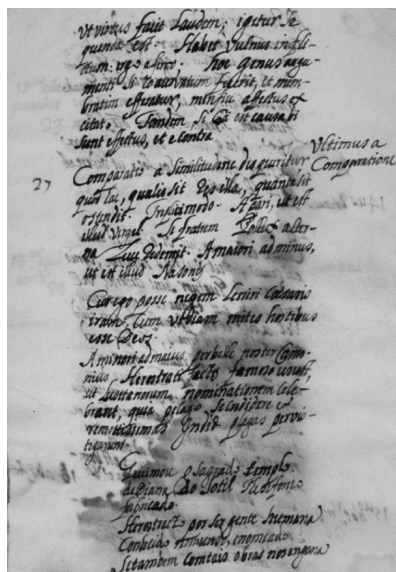 ut virtus fuit laudem; igitur se
quenda est. Habet vulnus infli
ctum: ergo a ferro. hoc genus argu
menti si coacervatum fuerit, et mem
bratim efferatur, mirifice affectus ex
citat. Tandem si est causa
sunt effectus, et e contra
Ultimus a
Comparatione
27
Comparatio a similitudine disquiritur
quod sit, qualis sit res illa, quanta sit
ostendit. modo. A pari, ut est
illud Virgil. Si fratrem Pollux alter
na redemit. A maiori ad minus,
ut est illud Nasonis
Cur ego posse negem leniri Caesaris
iram, Cum videam mites hostibus
esse Deos
A minori ad maius perbelle noster Camo
nius, Herostrati facto famoso
ut Lusitanorum nominationem cele
brent, quia pelago se et
remotissimas Indiae plagas pervis
tigarunt.
Queimou o sagrado templo
de Diana Do sotil Tesifonio
fabricado
Herostrato por ser gente humana
Conhecido no mundo, e nomeado
Se tambem com tais obras nos engana